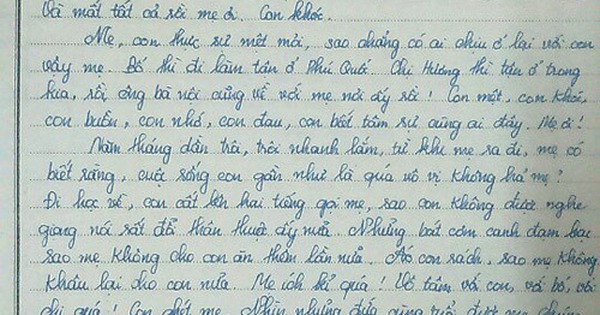 Và mất tất cả rồi mẹ ơi. Con khóc.
Mẹ, con thực sự mệt mỏi, sao chẳng có ai chịu ở lại với con
vậy mẹ. Bố thì đi làm tận ở Phú Quốc. Chị Hương thì tận ở trong
kia, rồi ông bà nội cũng về với mẹ nơi ấy rồi! Con mệt, con khóc,
con buồn, con nhớ, con đau, con biết tâm sự cùng ai đây. Mẹ ơi!
Năm tháng dần trôi, trôi nhanh lắm, từ khi mẹ ra đi, mẹ có
biết rằng, cuộc sống con gần như là quá vô vị không hả mẹ?
Đi học về, con cất lên hai tiếng gọi mẹ, sao con không được nghe
giọng nói rất đỗi thân thuộc ấy nữa. Những bát cơm canh đạm bạc
sao mẹ không cho con ăn thêm lần nữa. Áo con rách, sao mẹ không
khâu lại cho con nữa. Mẹ ích kỉ quá! Vô tâm với con, với bố, với
chị quá! Con ghét mẹ. Nhìn những đứa cùng tuổi được mẹ